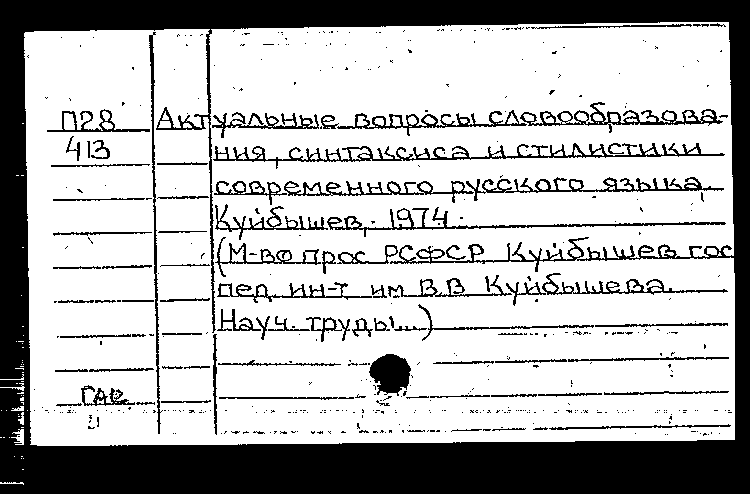 П28 Актуальные вопросы словообразова-
413 ния, синтаксиса и стилистики
современного русского языка.
Куйбышев, 1974.
(М-во прос РСФСР Куйбышев гос
пед. ин-т им В.В Куйбышева.
Науч. труды...)